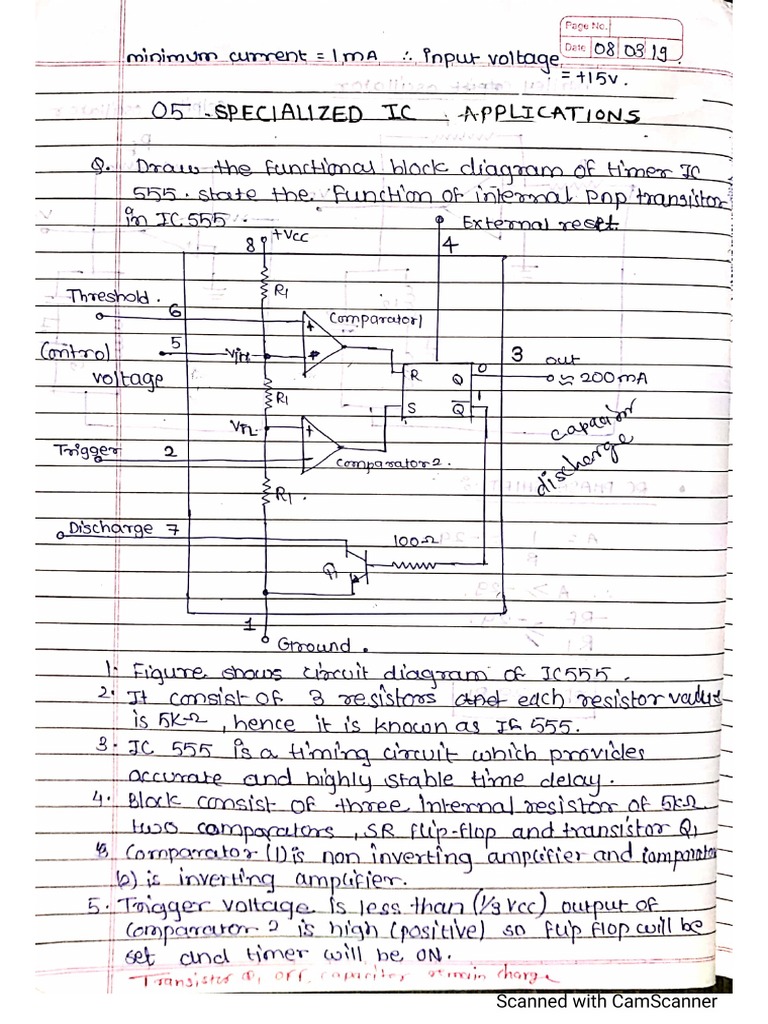 Page No.
Date 08 03 19
minimum current = 1mA ∴ input voltage
= +15v.
05 . SPECIALIZED IC . APPLICATIONS
Q. Draw the functional block diagram of timer IC
555. state the function of internal pnp transistor
in IC 555.
External reset
8 +Vcc
4
R1
Threshold . 6
Comparator 1
+
Control 5
voltage
3 out
R Q 0
≈ 200mA
R1
S Q̅ 1
+
Trigger 2
Comparator 2.
capacitor
discharge
R1.
Discharge 7
100Ω
Q1
1
Ground .
1. Figure shows circuit diagram of IC555.
2. It consist of 3 resistors and each resistor value
is 5KΩ , hence it is known as IC 555.
3. IC 555 is a timing circuit which provides
accurate and highly stable time delay.
4. Block consist of three internal resistor of 5KΩ
two comparators , SR flip-flop and transistor Q1
Comparator (1) is non inverting amplifier and comparator
(2) is inverting amplifier.
5. Trigger voltage is less than (1/3 Vcc) output of
comparator 2 is high (positive) so flip flop will be
set and timer will be ON.
Transistor Q1 OFF, capacitor remain charge
Scanned with CamScanner